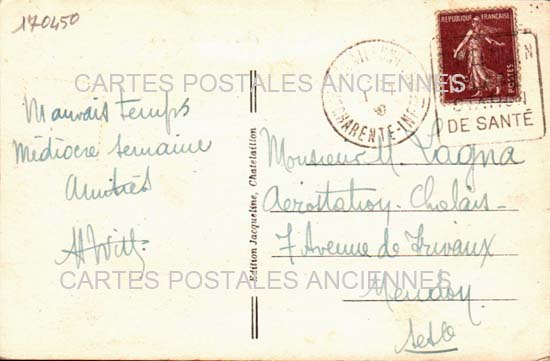 170450
REPUBLIQUE FRANÇAISE
POSTES
CHARENTE-INF
DE SANTÉ
CARTES POSTALES ANCIENNES
Mauvais temps
Médiocre semaine
Amitiés
Edition Jacqueline, Chatelaillon
Monsieur M. Lagna
Aérostation-Chalais-
7 Avenue de Trivaux
Meudon
S et O
CARTES POSTALES ANCIENNES